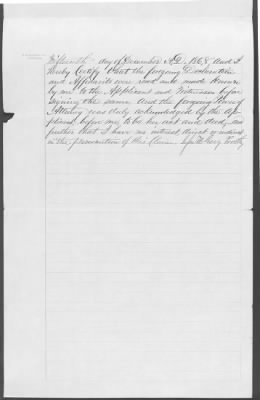 Fifteenth day of December A.D. 1868 and I
hereby Certify that the forgoing Declaration
and Affidavits were read and made known
by me to the Applicant and Witnesses before
signing the same and the forgoing Power of
Attorney was duly acknowledged by the Ap-
plicant before me to be her act and deed, and
further that I have no interest direct or indirect
in the prosecution of this Claim.